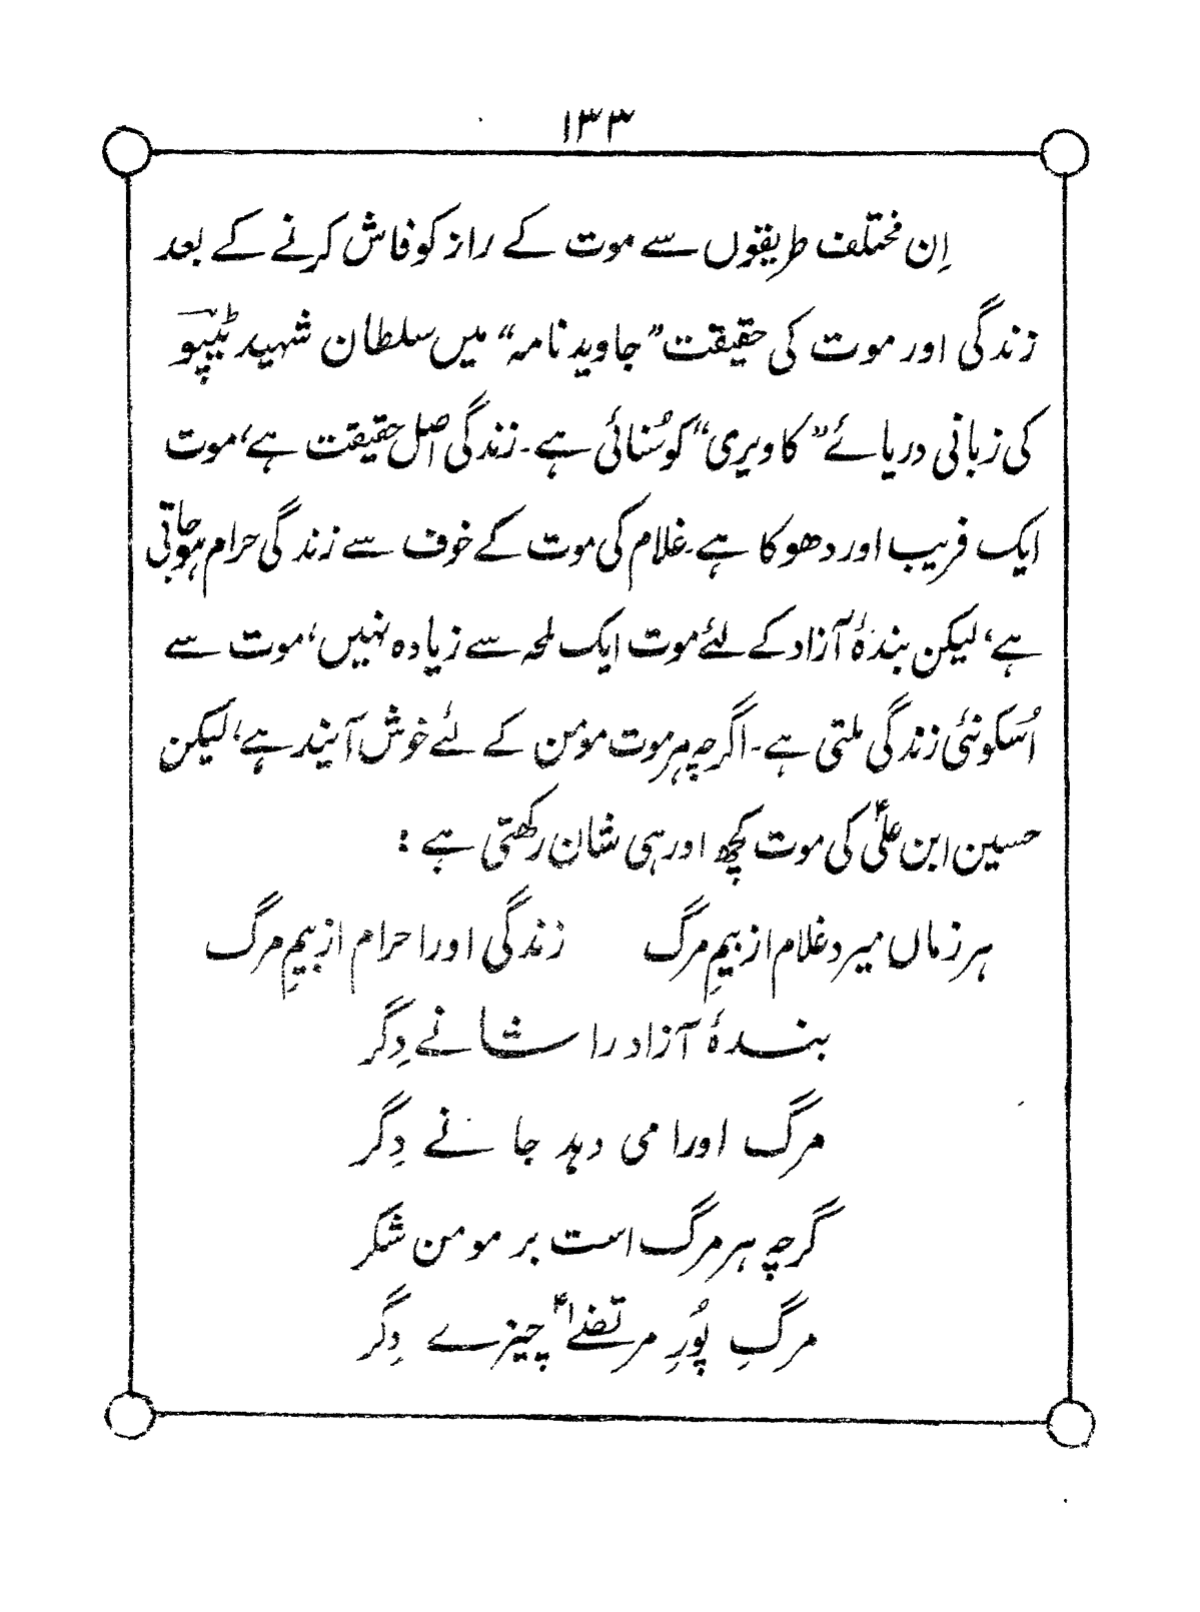 ۱۳۳
اِن مختلف طریقوں سے موت کے راز کو فاش کرنے کے بعد
زندگی اور موت کی حقیقت ”جاوید نامہ“ میں سلطان شہید ٹیپوؒ
کی زبانی دریائے ”کاویری“ کو سُنائی ہے۔ زندگی اصل حقیقت ہے، موت
ایک فریب اور دھوکا ہے۔ غلام کی موت کے خوف سے زندگی حرام ہو جاتی
ہے، لیکن بندۂ آزاد کے لئے موت ایک لمحہ سے زیادہ نہیں، موت سے
اُسکو نئی زندگی ملتی ہے۔ اگرچہ ہر موت مومن کے لئے خوش آیند ہے، لیکن
حسین ابن علیؑ کی موت کچھ اور ہی شان رکھتی ہے:
ہر زماں میرد غلام از بیمِ مرگ زندگی اورا حرام از بیمِ مرگ
بندۂ آزاد را شانے دِگر
مرگ اورا می دہد جانے دِگر
گرچہ ہر مرگ است بر مومن شکر
مرگِ پُورِ مرتضےٰؑ چیزے دِگر